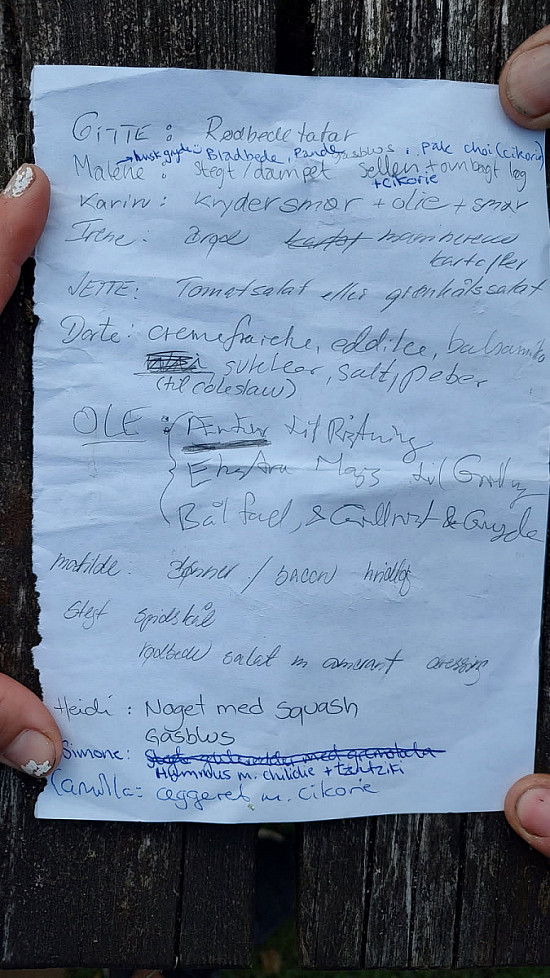 GITTE: Rødbedetatar
→husk gryde Bladbede, Pande gasblus, pak choi (cikorie)
Malene: Stegt/dampet selleri + ovnbagt løg
+cikorie
Karin: Krydersmør + olie + smør
Irene: kartof
kartofler
JETTE: Tomatsalat eller grønkålssalat
Dorte: cremefraiche, eddike, balsamico
sukker, salt, peber
(til coleslaw)
OLE: til Ristning
Ekstra til
Bålfad, & Grillrist & Gryde
Matilde: bønner / bacon hvidløg
Stegt spidskål
rødbede salat m dressing
Heidi: Noget med squash
Gasblus
Simone:
Hummus m. + tzatziki
Camilla: æggeret m. Cikorie